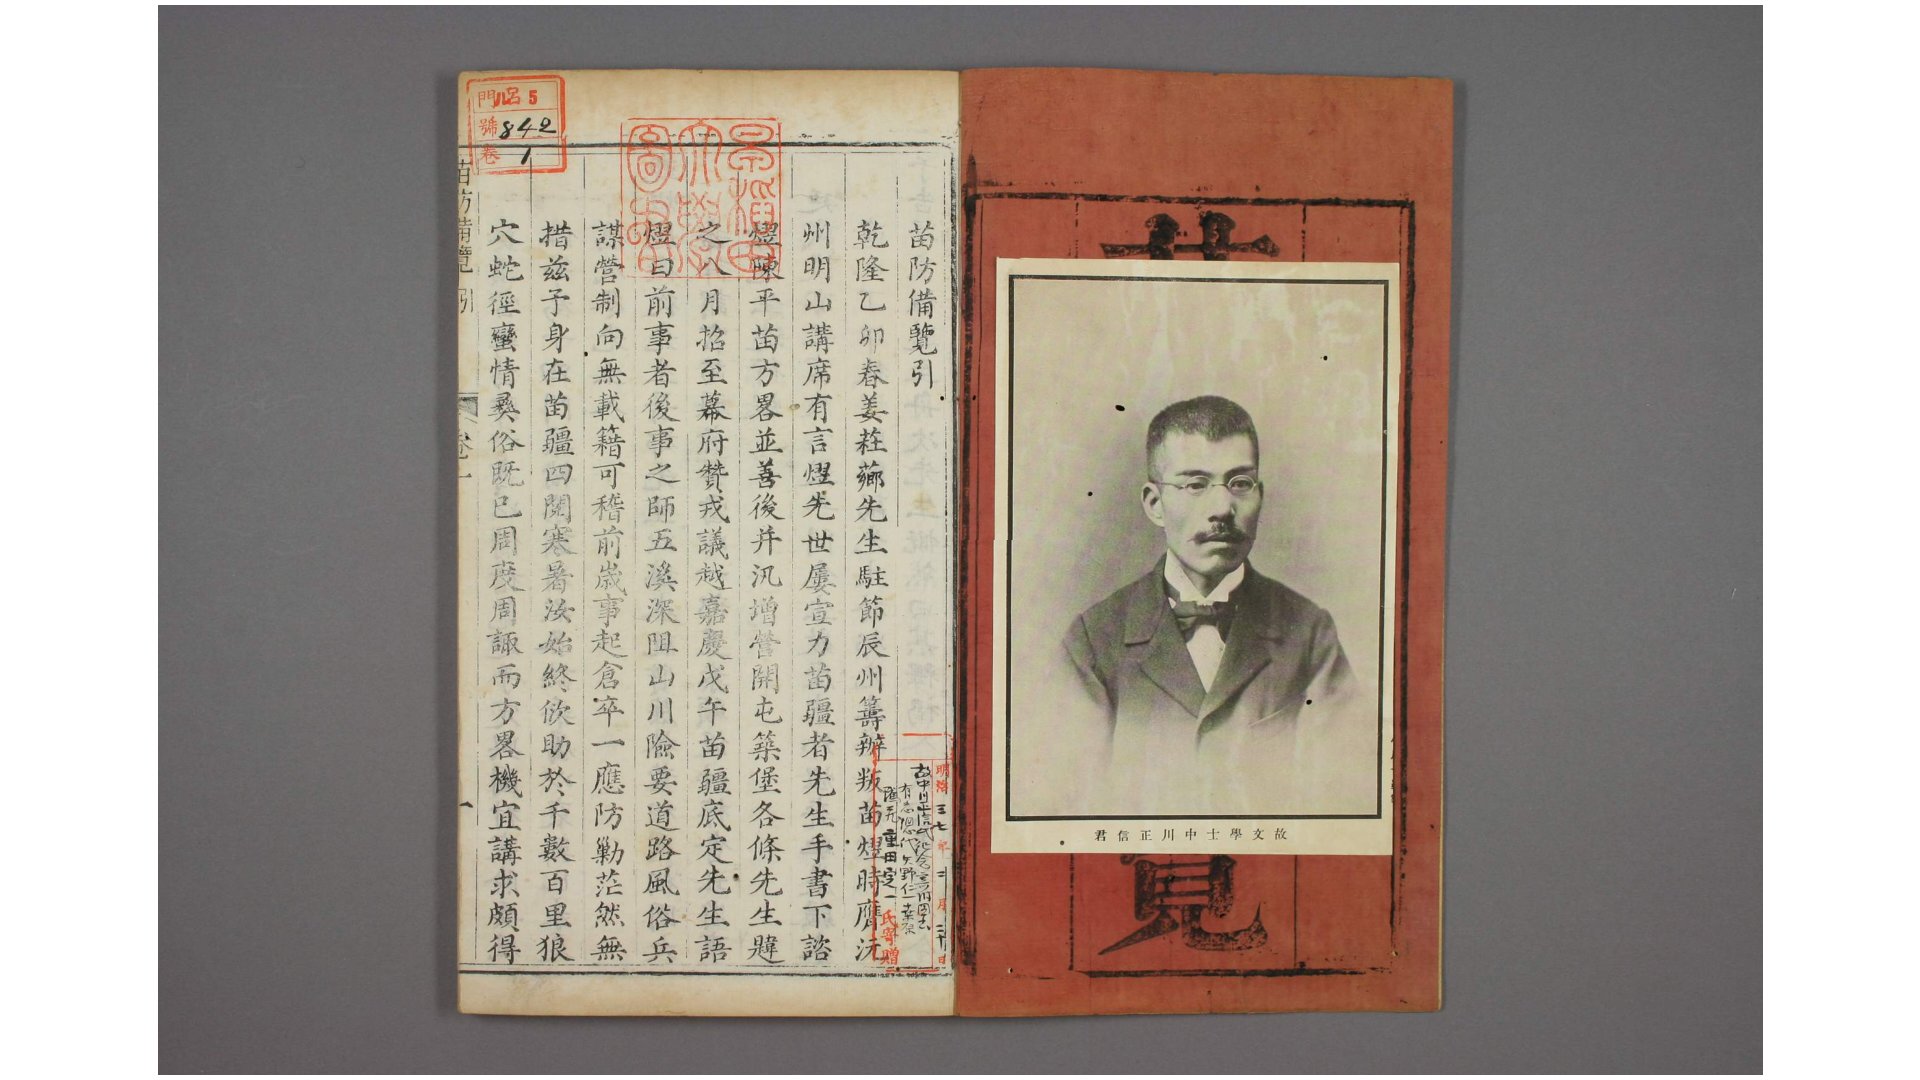 故文學士中川正信君
苗
覽
門 呂 5
號 842
卷 1
早稲田
大學
圖書
苗防備覽引
乾隆乙卯春姜莊薌先生駐節辰州籌辦叛苗熤時膺沅
州明山講席有言熤先世屢宣力苗疆者先生手書下諮
熤陳平苗方畧並善後并汛增營開屯築堡各條先生韙
之八月招至幕府贊戎議越嘉慶戊午苗疆底定先生語
熤曰前事者後事之師五溪深阻山川險要道路風俗兵
謀營制向無載籍可稽前歲事起倉卒一應防勦茫然無
措茲予身在苗疆四閱寒暑汝始終佽助於千數百里狼
穴蛇徑蠻情彞俗既已周度周諏而方畧機宜講求頗得
苗防備覽 引
卷一
一
明治三七年三月三十日
故中川正信氏紀念
有志總代矢野仁一
重田定一
氏寄贈